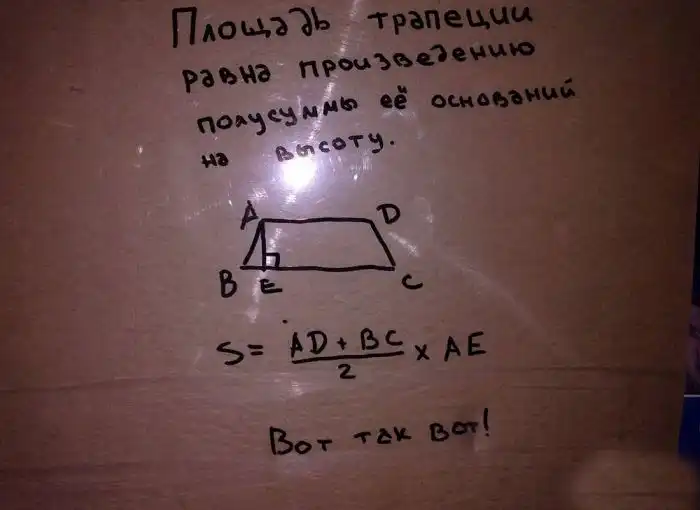 Площадь трапеции
равна произведению
полусуммы её оснований
на высоту.
A D
B E C
S = AD + BC / 2 × AE
Вот так вот!